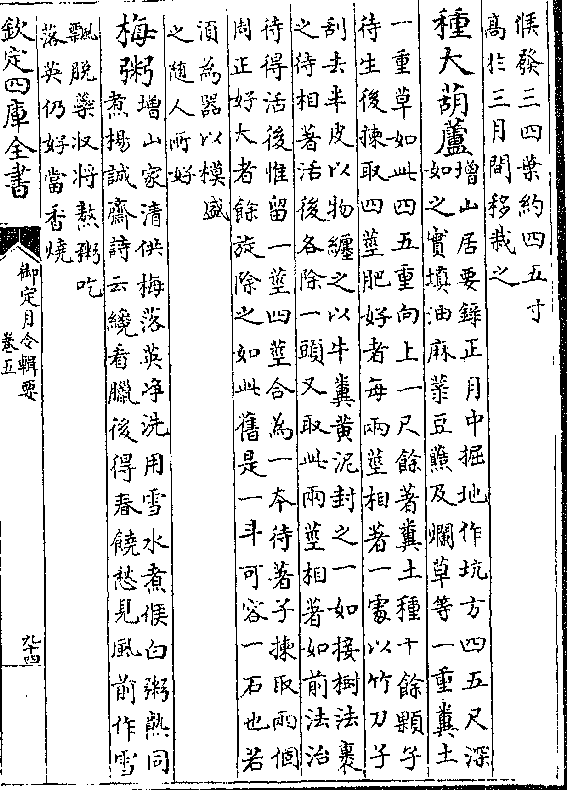 候發三四葉約四五寸
高於三月間移栽之
種大葫蘆增山居要錄正月中掘地作坑方四五尺深
如之實填油麻菉豆䕸及爛草等一重糞土
一重草如此四五重向上一尺餘著糞土種十餘顆子
待生後揀取四莖肥好者每兩莖相著一處以竹刀子
刮去半皮以物纏之以牛糞黄泥封之一如接樹法裹
之待相著活後各除一頭又取此兩莖相著如前法治
待得活後惟留一莖四莖合為一本待著子揀取兩個
周正好大者餘旋除之如此舊是一斗可容一石也若
須為器以模盛
之隨人所好
梅粥增山家清供梅落英净洗用雪水煮候白粥熟同
煮楊誠齋詩云纔看臘後得春饒愁見風前作雪
飄脱蘂收將熬粥吃
落英仍好當香燒
欽定四庫全書
御定月令輯要
卷五
九十四